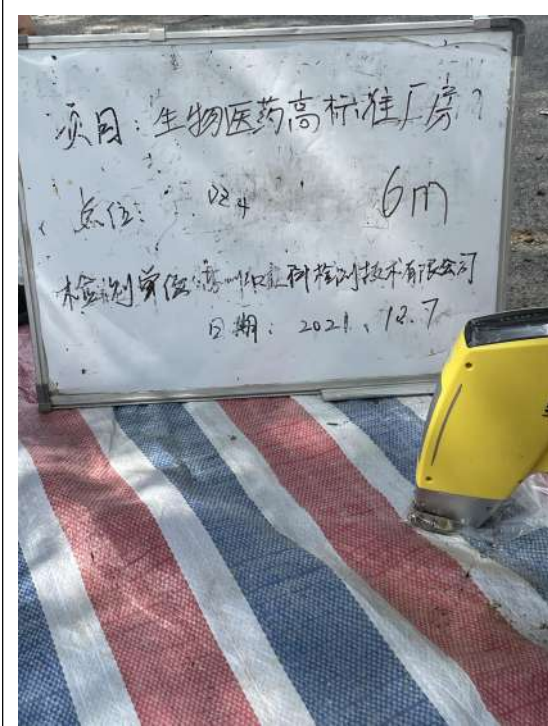 项目:生物医药高标准厂房
点位: 6m
检测单位: 检测技术有限公司
日期: 2021.12.7